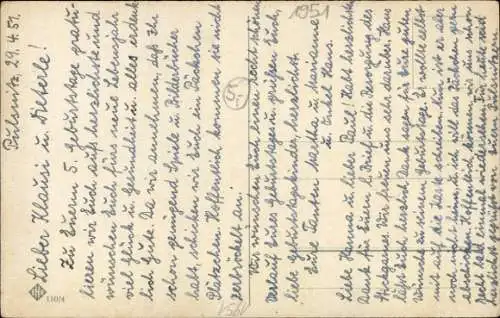 Pulsnitz, 29.4.51.
Lieber Klausi u. Dieterle!
Zu Euerm 5. Geburtstage gratu-
lieren wir Euch aufs herzlichste und
wünschen Euch fürs neue Lebensjahr
viel Glück u. Gesundheit u. alles erdenk
lich Gute. Da wir annehmen, daß Ihr
schon genügend Spiele u. Bilderbücher
habt, schicken wir Euch ein Päckchen
Plätzchen. Hoffentlich kommen sie nicht
zerbröckelt an.
Wir wünschen Euch einen recht schönen
Verlauf Eures Geburtstages u. grüßen Euch,
liebe Geburtstagskinder, herzlichst
Eure Tanten Martha u. Marianne
u. Onkel Hans.
Liebe Hanna u. lieber Paul! Habt herzlichsten
Dank für Euern l. Brief u. die Besorgung des
Strickgarnes. Wir freuen uns sehr darüber. Hans
läßt Euch herzlich Dank sagen für Eure guten
Wünsche zu seinem Geburtstage. Er wollte selbst
mit auf die Karte schreiben. Nun ist er aber
noch nicht und ich will das Päckchen gern
1951
5,-
110/4